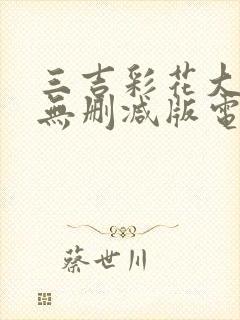 三吉彩花大
無删减版電
蔡世川